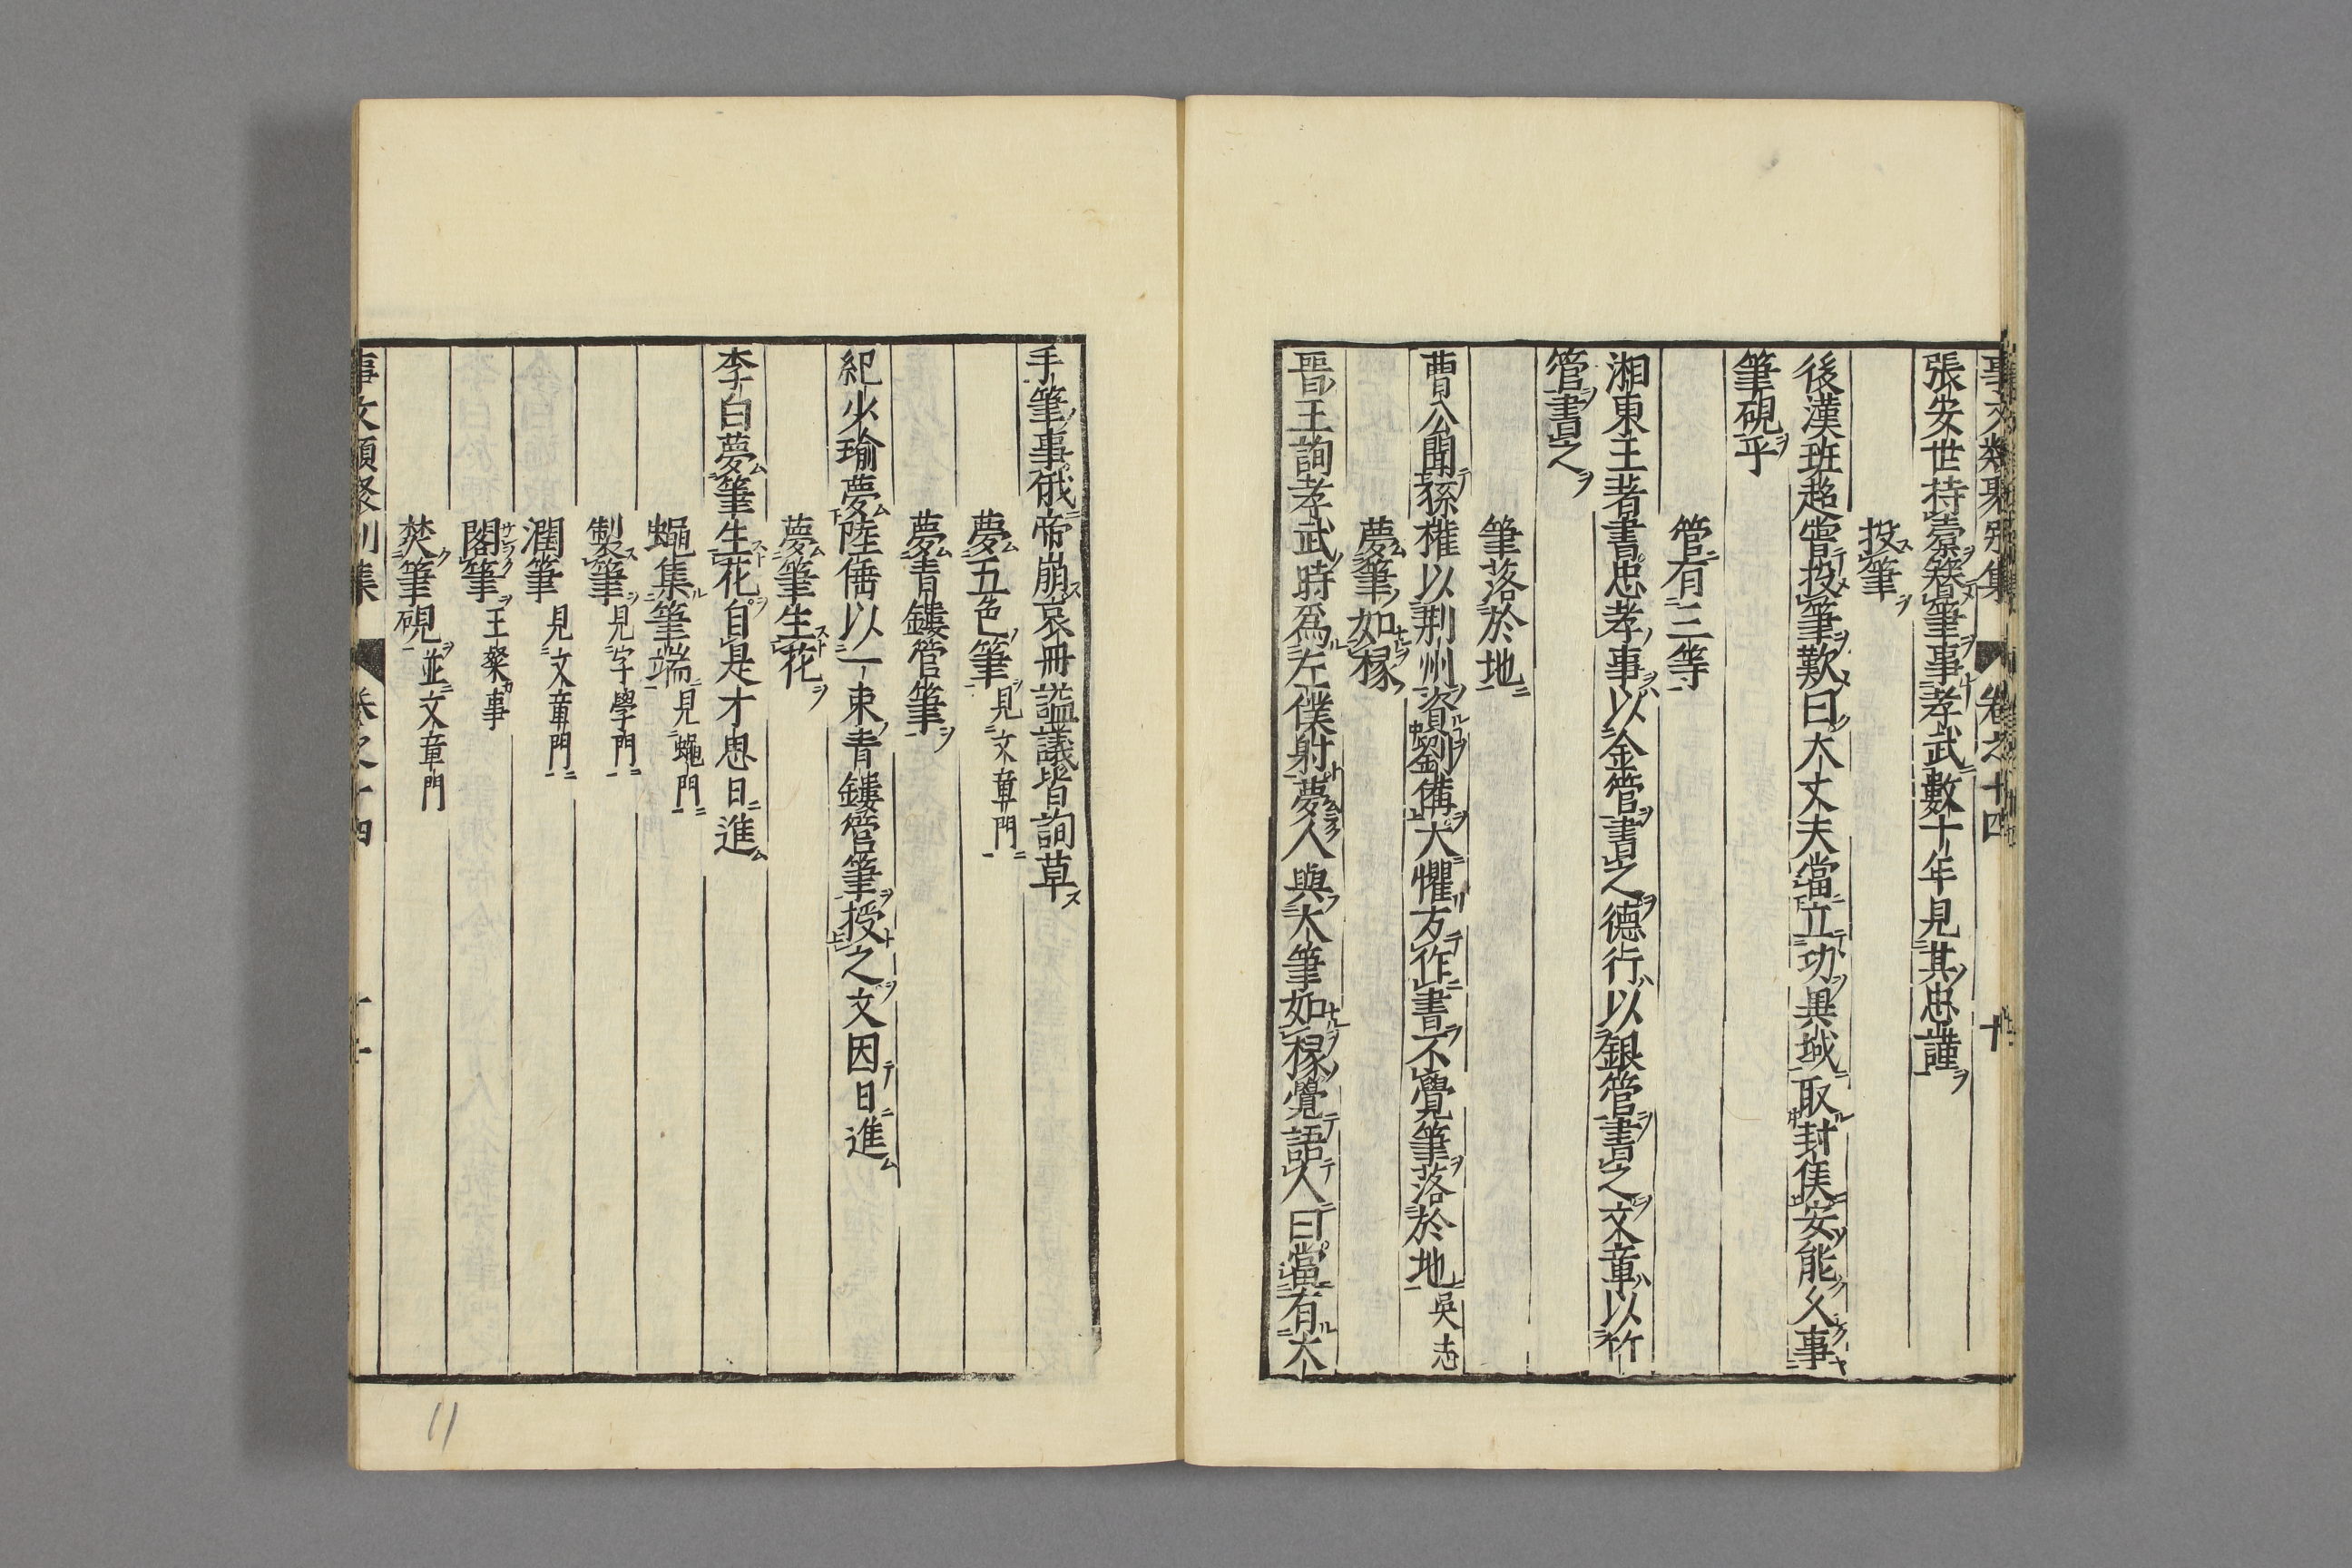 事文類聚別集 卷之十四 十
張安世持槖簪筆事孝武數十年見其忠謹
投筆
後漢班超嘗投筆歎曰大丈夫當立功異域取封侯安能久事
筆硯乎
管有三等
湘東王著書忠孝事以金管書之德行以銀管書之文章以竹
管書之
筆落於地
曹公聞孫權以荆州資劉備大懼方作書不覺筆落於地 吳志
夢筆如椽
晉王詢孝武時爲左僕射夢人與大筆如椽覺語人曰當有大
手筆事俄帝崩哀冊謚議皆詢草
夢五色筆 見文章門
夢青鏤管筆
紀少瑜夢陸倕以一束青鏤管筆授之文因日進
夢筆生花
李白夢筆生花自是才思日進
蠅集筆端 見蠅門
製筆 見字學門
潤筆 見文章門
閣筆 王粲事
焚筆硯 並文章門
事文類聚別集 卷之十四 十一
11